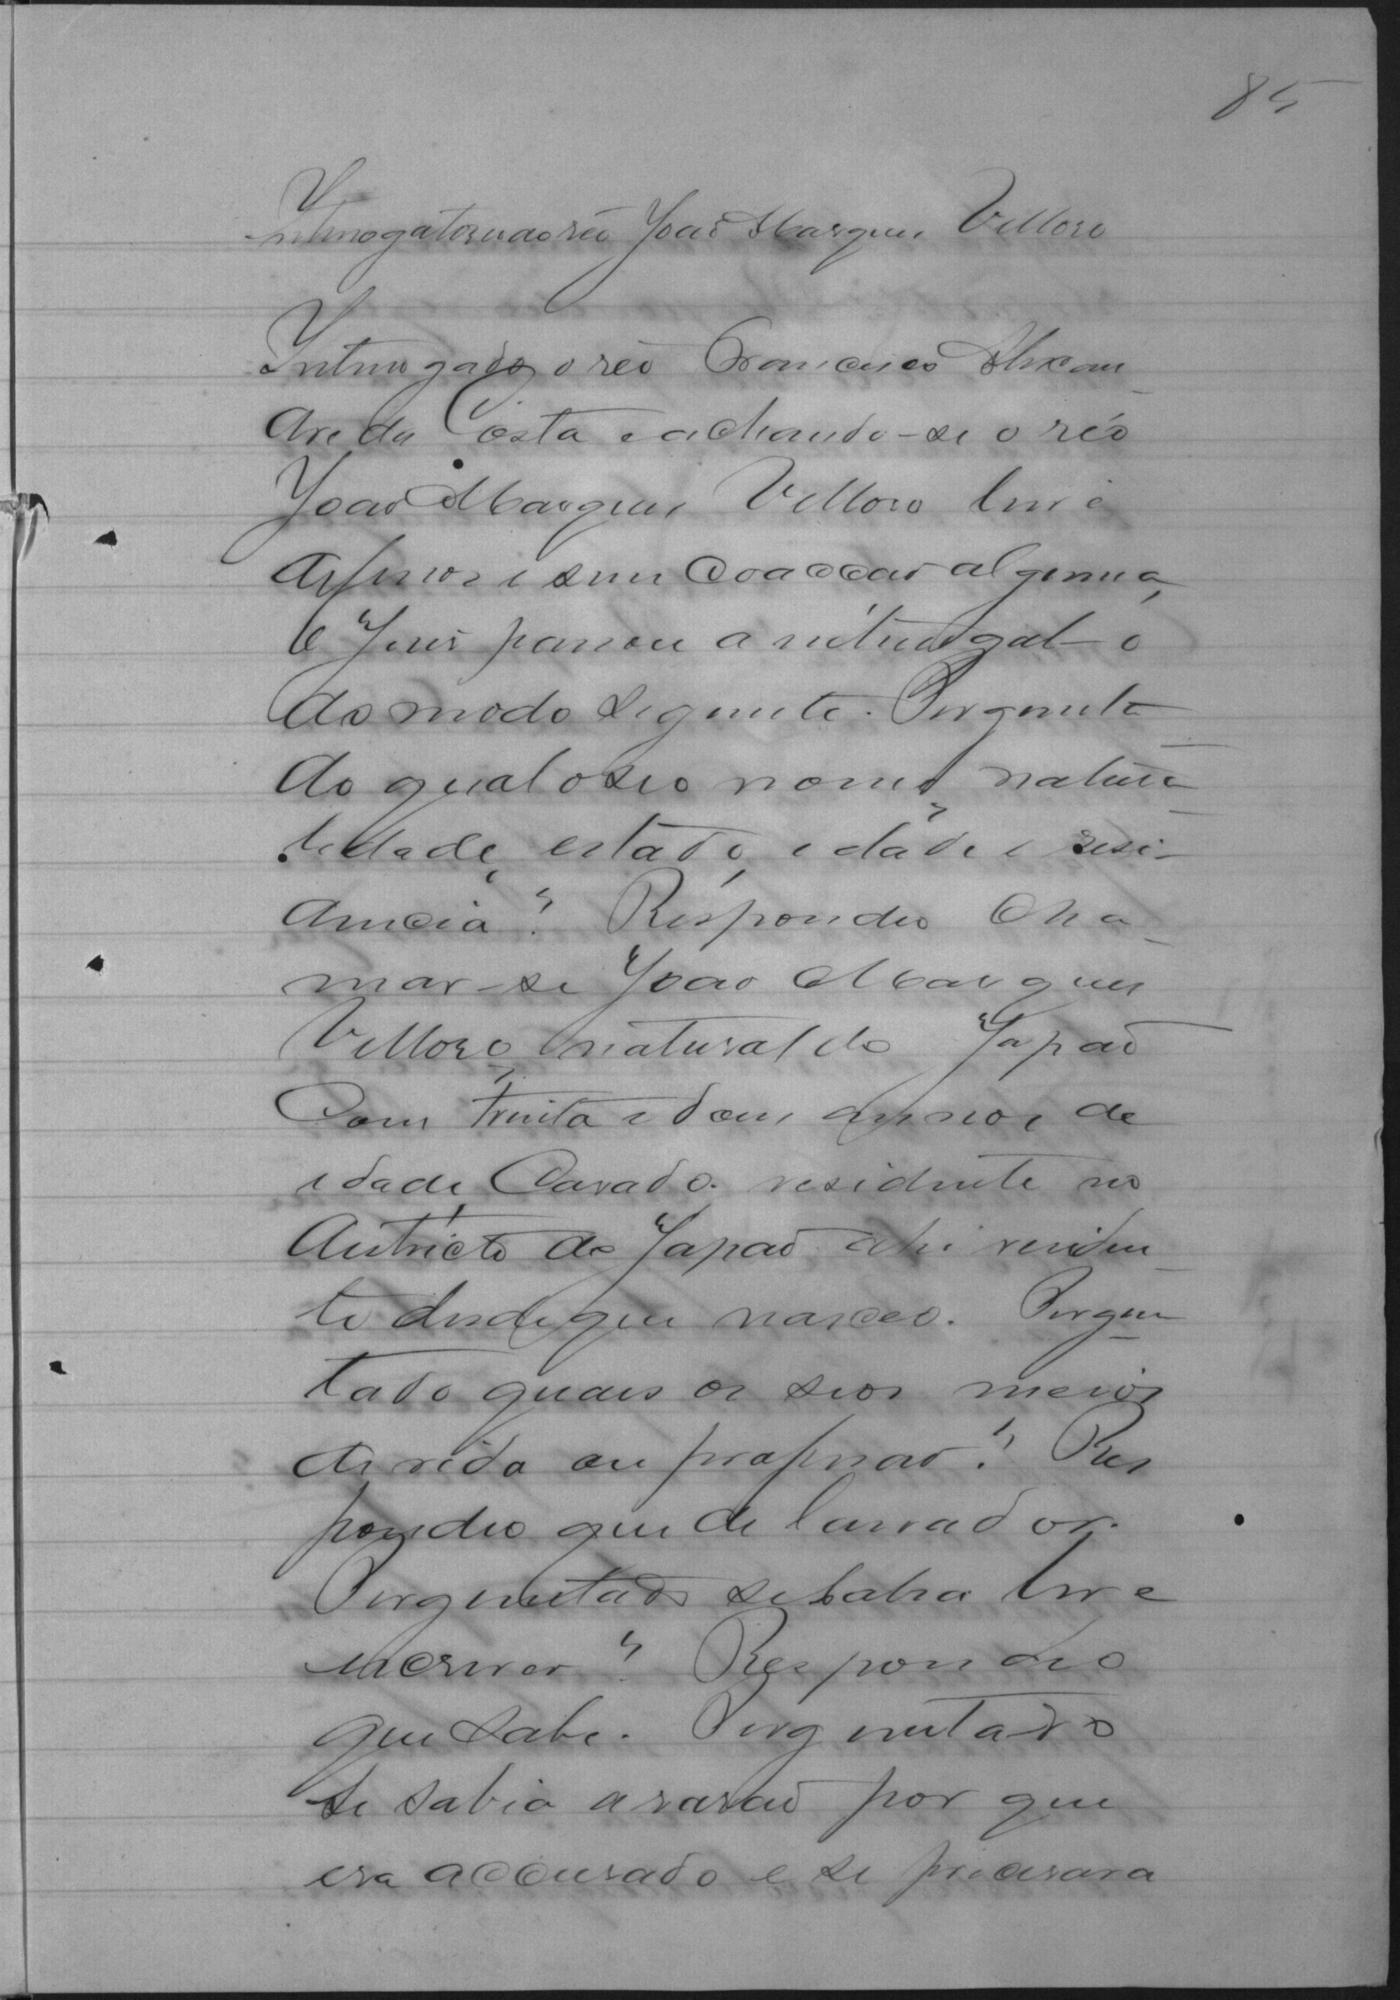 85
Interrogatorio ao réo João Marques Velloso
Interrogado o réo Francisco Alexan-
dre da Costa e achando-se o réo
João Marques Velloso livre
de ferros e sem coacção alguma,
o Juiz passou a interrogal-o
do modo seguinte. Pergunta-
do qual o seo nome, natura-
lidade, estado, idade e resi-
dencia? Respondeo cha-
mar-se João Marques
Velloso, natural do Japão
com trinta e dous annos de
idade, casado. residente no
districto do Japão ahi residen-
te desde que nasceo. Pergun-
tado quaes os seos meios
de vida ou profissão? Res
pondeo que de lavrador.
Perguntado se sabia ler e
escrever? Respondeo
que sabe. Perguntado
se sabia a rasão por que
era accusado e se precisava